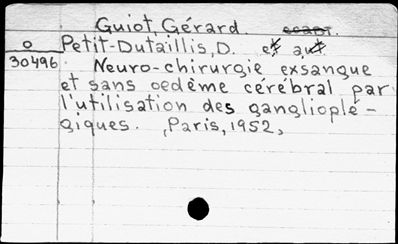 Guiot, Gérard.
o Petit-Dutaillis, D. et aut
30496 Neuro-chirurgie exsangue
et sans oedème cérébral par
l'utilisation des ganglioplé-
giques. , Paris, 1952,